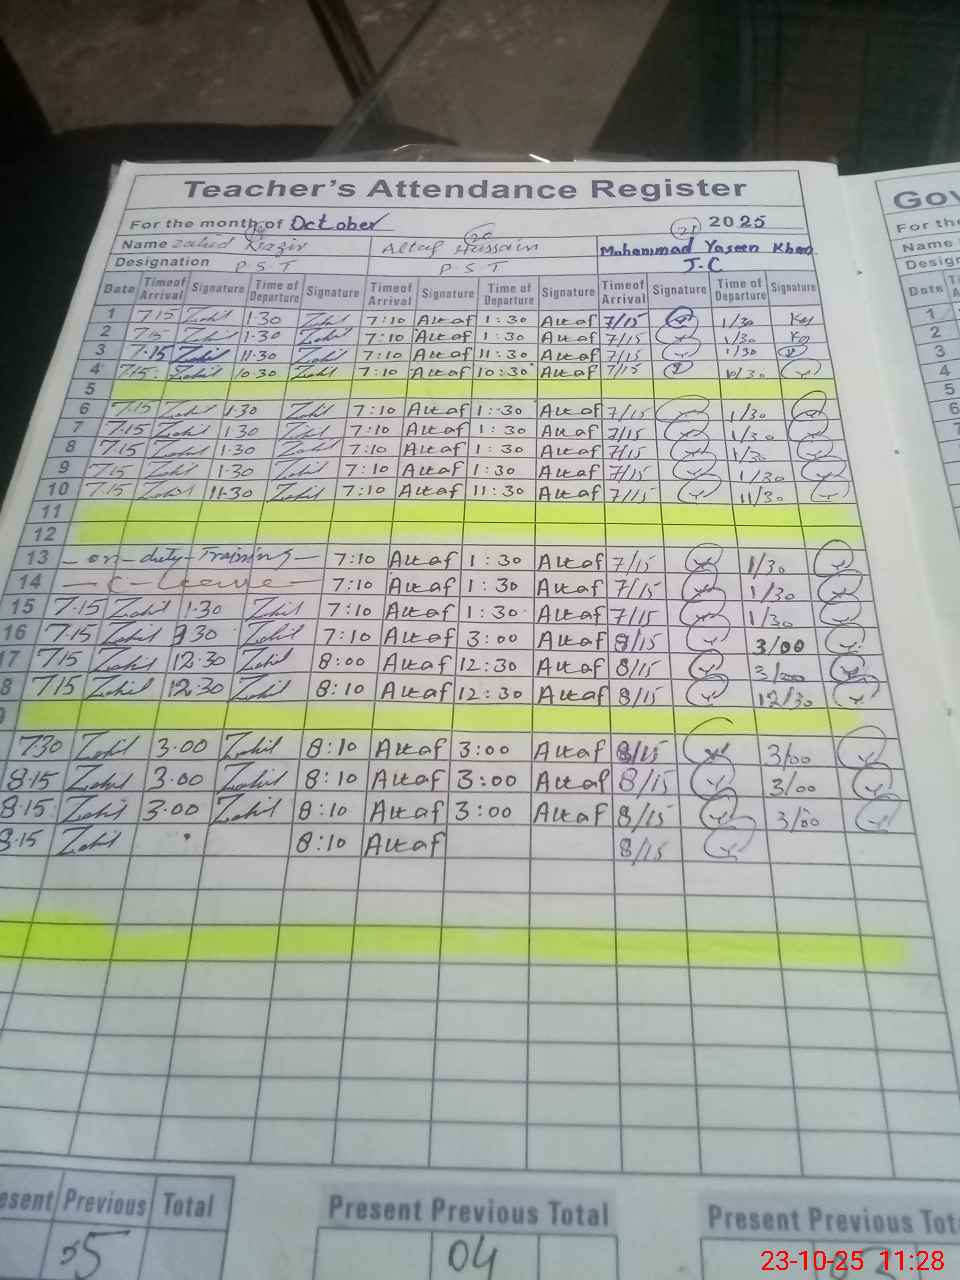 Teacher's Attendance Register
For the month of October 2025
Name Zahid Nazir Altaf Hussain Muhammad Yaseen Khan
Designation P.S.T P.S.T J.C
Date Time of Arrival Signature Time of Departure Signature Time of Arrival Signature Time of Departure Signature Time of Arrival Signature Time of Departure Signature
1 7.15 Zahid 1.30 Zahid 7:10 Altaf 1:30 Altaf 7/15 1/30
2 7.15 Zahid 1.30 Zahid 7:10 Altaf 1:30 Altaf 7/15 1/30
3 7.15 Zahid 11.30 Zahid 7:10 Altaf 11:30 Altaf 7/15 1/30
4 7.15 Zahid 10.30 Zahid 7:10 Altaf 10:30 Altaf 7/15 10/30
5
6 7.15 Zahid 1.30 Zahid 7:10 Altaf 1:30 Altaf 7/15 1/30
7 7.15 Zahid 1.30 Zahid 7:10 Altaf 1:30 Altaf 7/15 1/30
8 7.15 Zahid 1.30 Zahid 7:10 Altaf 1:30 Altaf 7/15 1/30
9 7.15 Zahid 1.30 Zahid 7:10 Altaf 1:30 Altaf 7/15 1/30
10 7.15 Zahid 11.30 Zahid 7:10 Altaf 11:30 Altaf 7/15 11/30
11
12
13 - on - duty - Training - 7:10 Altaf 1:30 Altaf 7/15 1/30
14 - C - Leave - 7:10 Altaf 1:30 Altaf 7/15 1/30
15 7.15 Zahid 1.30 Zahid 7:10 Altaf 1:30 Altaf 7/15 1/30
16 7.15 Zahid 30 Zahid 7:10 Altaf 3:00 Altaf 8/15 3/00
17 7.15 Zahid 12.30 Zahid 8:00 Altaf 12:30 Altaf 8/15 3/00
8 7.15 Zahid 12.30 Zahid 8:10 Altaf 12:30 Altaf 8/15 12/30
7.30 Zahid 3.00 Zahid 8:10 Altaf 3:00 Altaf 8/15 3/00
8.15 Zahid 3.00 Zahid 8:10 Altaf 3:00 Altaf 8/15 3/00
8.15 Zahid 3.00 Zahid 8:10 Altaf 3:00 Altaf 8/15 3/00
8.15 Zahid 8:10 Altaf 8/15
esent Previous Total Present Previous Total Present Previous Tot
05 04
Gov
For the
Name
Design
Date
1
2
3
4
5
6
7
23-10-25 11:28